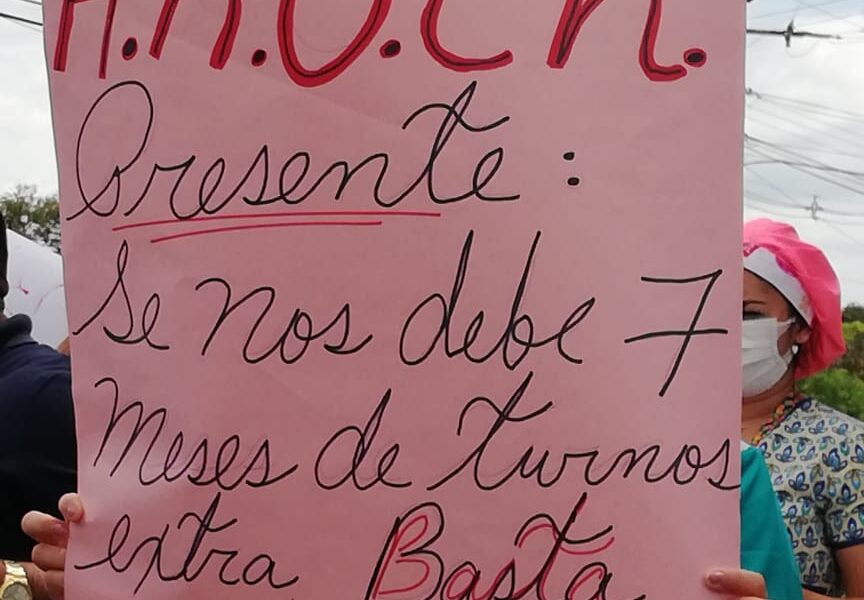 Presente:
Se nos debe 7
Meses de turnos
extra Basta